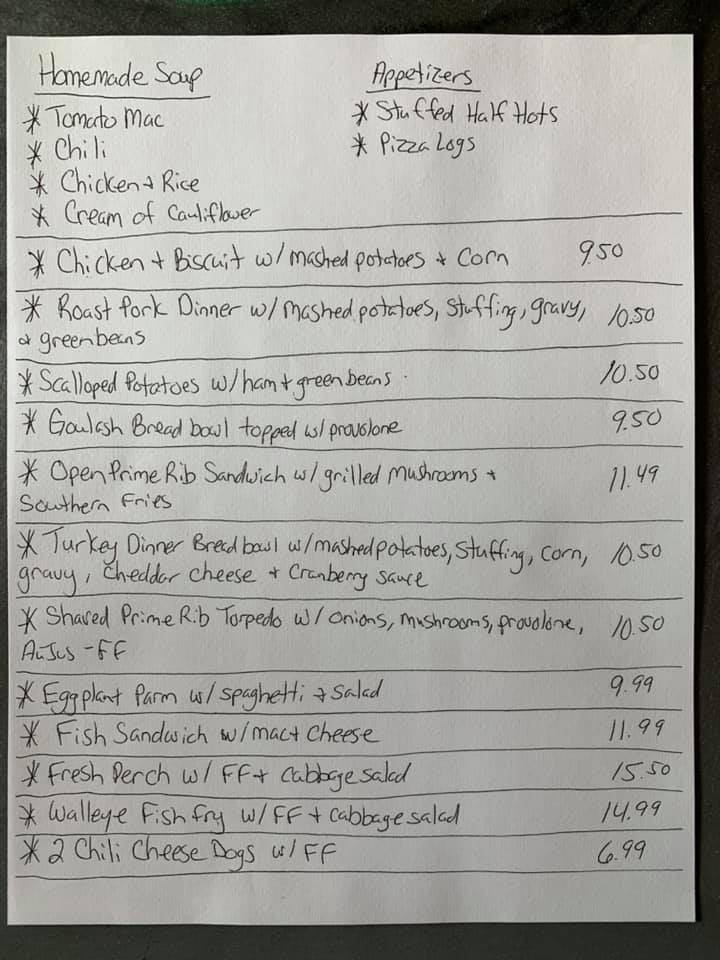 Homemade Soup
* Tomato Mac
* Chili
* Chicken + Rice
* Cream of Cauliflower
Appetizers
* Stuffed Half Hots
* Pizza Logs
* Chicken + Biscuit w/ mashed potatoes + Corn 9.50
* Roast Pork Dinner w/ mashed potatoes, stuffing, gravy, 10.50
+ greenbeans
* Scalloped Potatoes w/ ham + green beans 10.50
* Goulash Bread bowl topped w/ provolone 9.50
* Open Prime Rib Sandwich w/ grilled mushrooms + 11.49
Southern Fries
* Turkey Dinner Bread bowl w/ mashed potatoes, Stuffing, Corn, 10.50
gravy, Cheddar cheese + Cranberry sauce
* Shaved Prime Rib Torpedo w/ onions, mushrooms, provolone, 10.50
AuJus - FF
* Eggplant Parm w/ spaghetti + salad 9.99
* Fish Sandwich w/ mac + cheese 11.99
* Fresh Perch w/ FF + cabbage salad 15.50
* Walleye Fish fry w/ FF + cabbage salad 14.99
* 2 Chili Cheese Dogs w/ FF 6.99